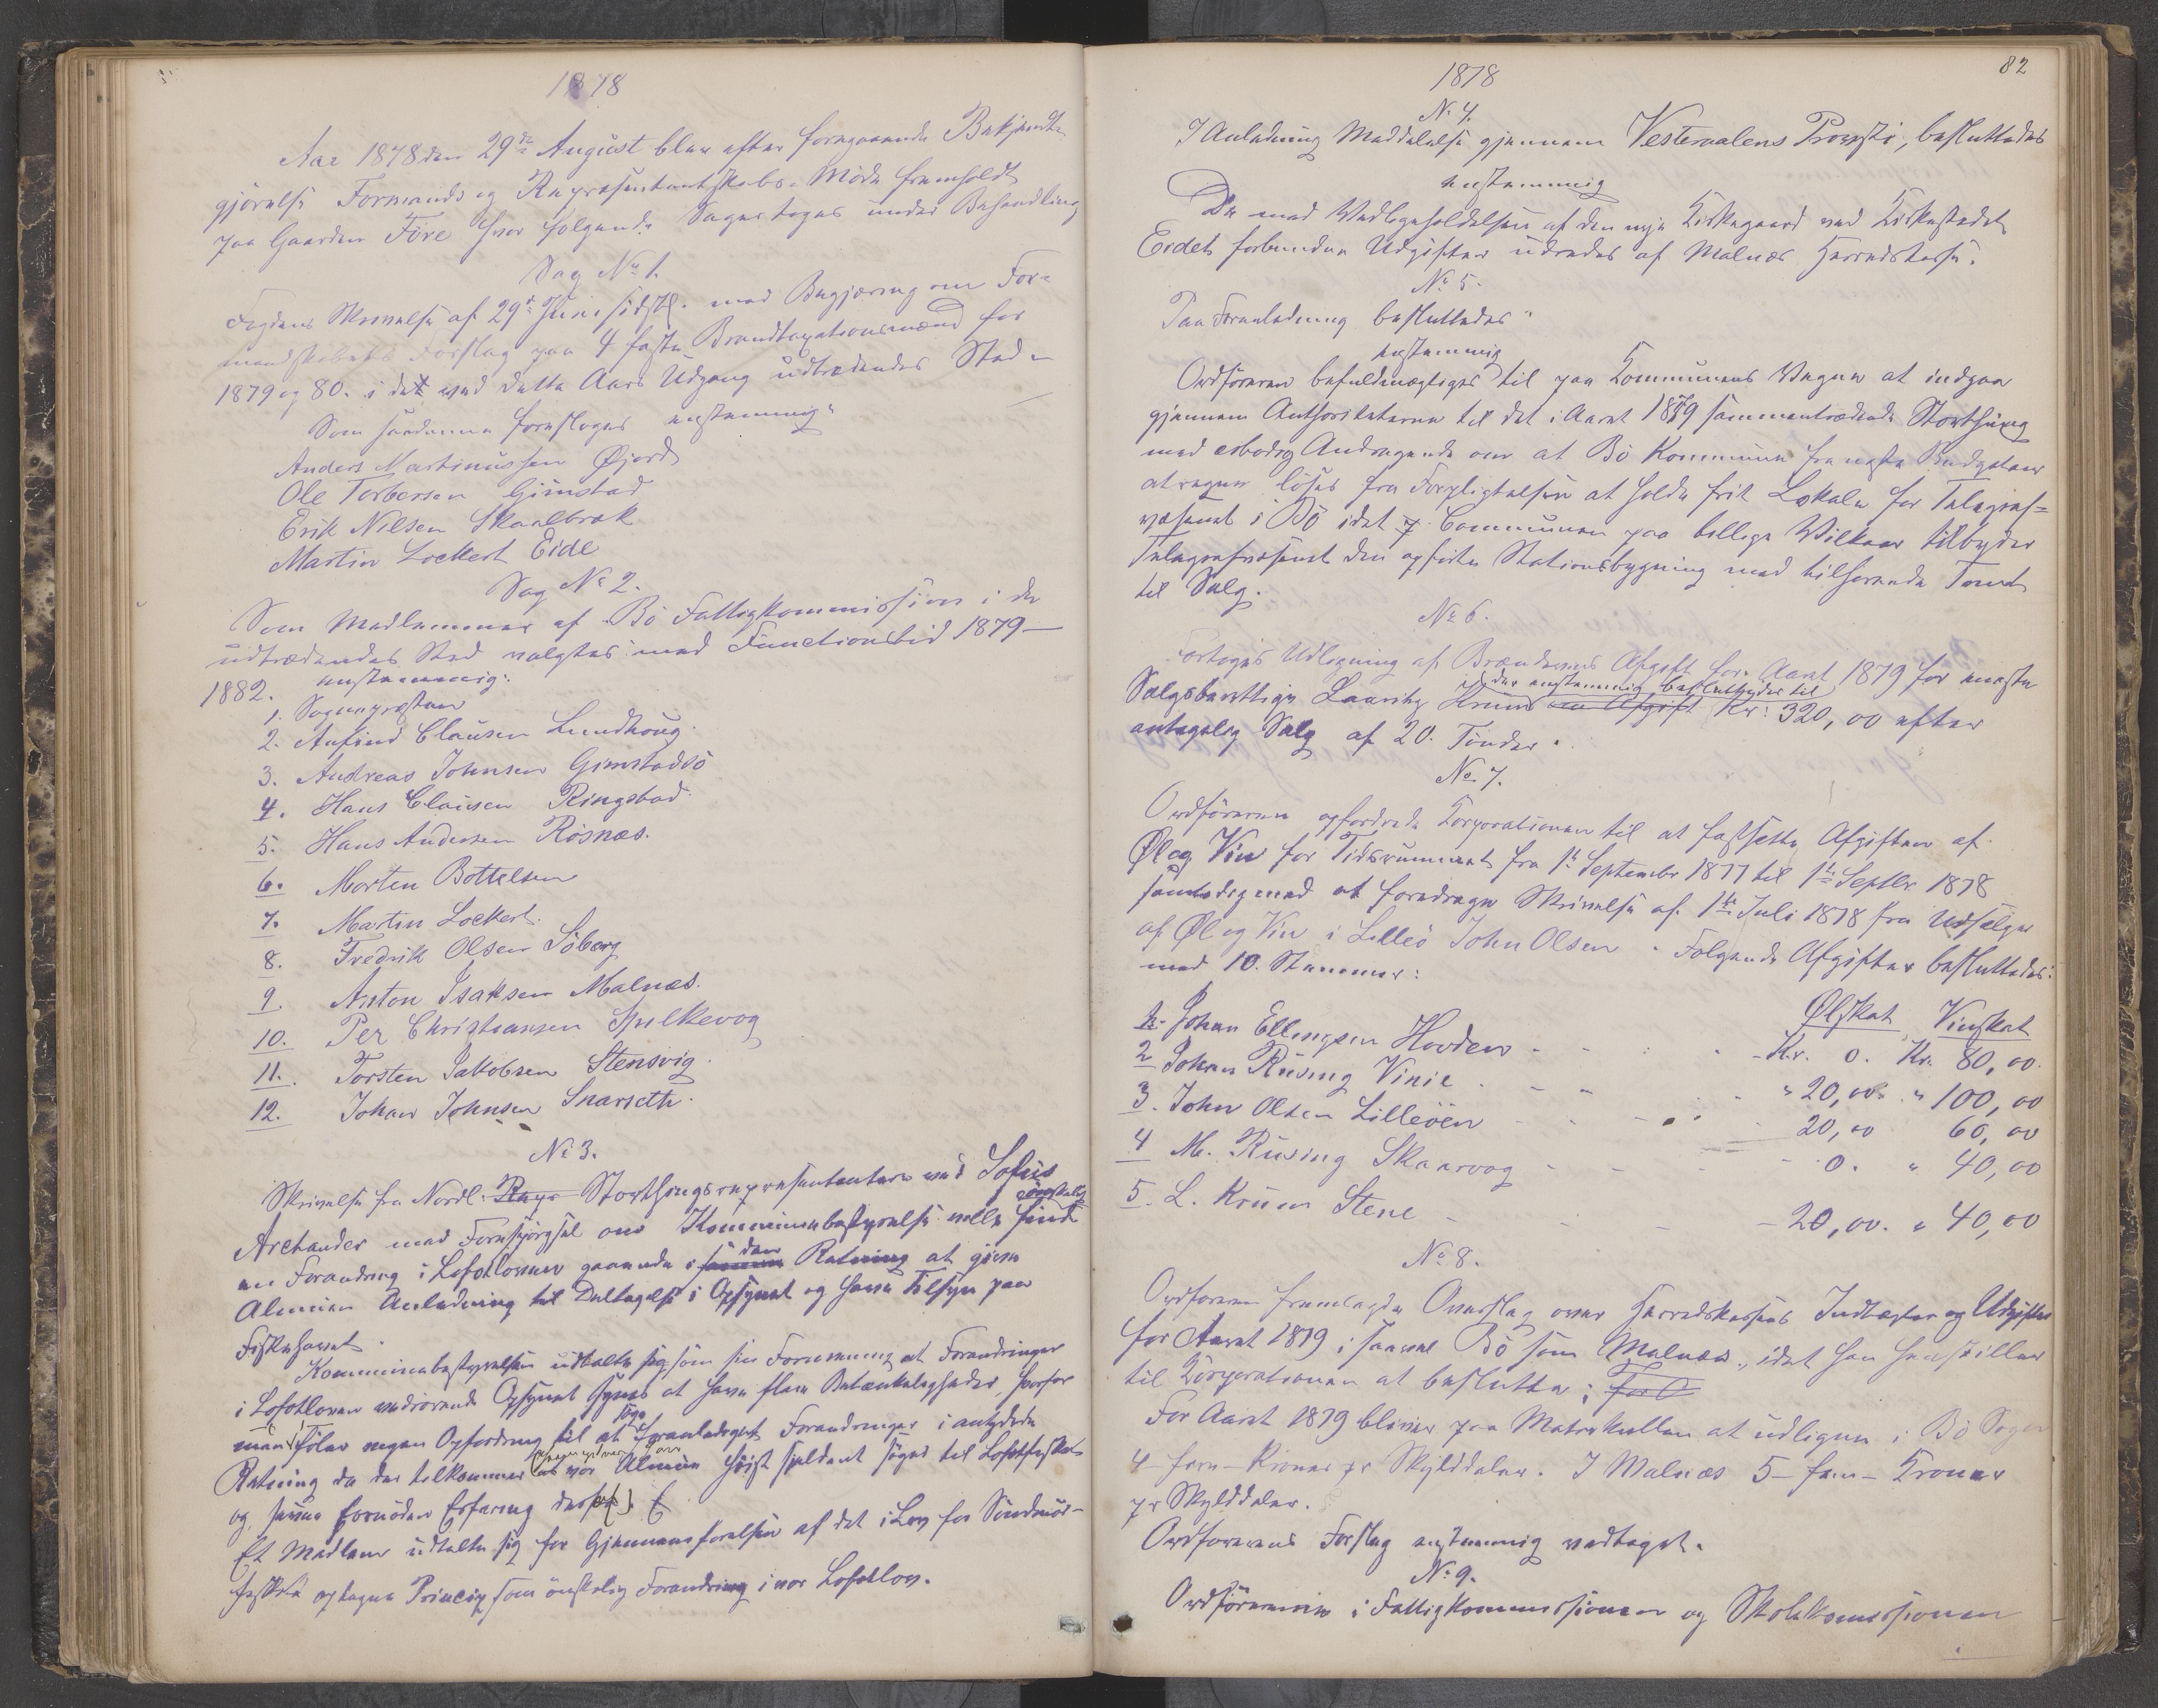 1878
Aar 1878 den 29de August blev efter foregaaende Bekjendt-
gjørelse Formands og Repræsentantskabs-Møde fremholdt
paa Gaarden Føre hvor følgende Sager toges under Behandling
Sag No 1.
Fogdens Skrivelse af 29de Juni sidstl. med Begjæring om For-
mandskabets Forslag paa 4 faste Brandtaxationsmænd for
1879 og 80. i det ved dette Aars Udgang udtrædendes Sted -
Som saadanne foresloges enstemmig:
Anders Martinussen Øjord
Ole Torbersen Gimstad
Erik Nilsen Skaalbræk
Martin Lockert Eide
Sag No 2.
Som Medlemmer af Bø Fattigkommission i de
udtrædendes Sted valgtes med Functionstid 1879 —
1882. enstemmig:
1. Sognepræsten
2. Anfind Clausen Lundhoug.
3. Andreas Johnsen Gimstadsø
4. Hans Clausen Ringstad.
5. Hans Andersen Røsnæs.
6. Morten Bottelsen
7. Martin Lockert.
8. Fredrik Olsen Søberg
9. Anton Isaksen Malnæs.
10. Per Christiansen Spilkevog
11. Torsten Jakobsen Stensvig.
12. Johan Johnsen Snarseth.
No 3.
Skrivelse fra Nordl. Repr Storthingsrepræsentanter ved Sofus
Arctander med Forespørgsel om Kommunebestyrelse vilde finde ønskelig
en Forandring i Lofotloven gaaende i samme den Retning at give
Almuen Anledning til Deltagelse i Opsynet og have Tilsyn paa
Fiskehavet.
Kommunebestyrelsen udtalte sig som sin Formening at Forandringer
i Lofotloven vedrørende Opsynet synes at have flere Betænkeligheder, hvorfor
man føler ingen Opfordring til at søge foranlediget Forandringer i antydede
Retning da der tilkommer at vor Almue høist sjeldent søger til Lofotfisket
og savner fornøden Erfaring derfor.
Et Medlem udtalte sig for Gjennemførelsen af det i Lov for Søndmør-
fisket optagne Princip som ønskelig Forandring i vor Lofotlov.
82
1878
No 4.
I Anledning Meddelelse gjennem Vesteraalens Provsti, besluttedes
enstemmig
De med Vedligeholdelsen af den nye Kirkegaard ved Kirkestedet
Eidet forbundne Udgifter udredes af Malnæs Herredskasse.
No 5.
Paa Foranledning besluttedes
enstemmig
Ordføreren befuldmægtiges til paa Kommunens Vegne at indgaa
gjennem Authoriteterne til det i Aaret 1879 sammentrædende Storthing
med ærbødig Andragende om at Bø Kommune fra neste Budgetaar
at regne løses fra Forpligtelsen at holde frit Lokale for Telegraf-
væsenet i Bø idet Communen paa billige Vilkaar tilbyder
Telegrafvæsenet den opførte Stationsbygning med tilhørende Tomt
til Salg.
No 6.
Fortoges Udligning af Brændevins Afgift for Aaret 1879 for eneste
Salgsberettige Landhr Krum en Afgift der enstemmig besluttedes til Kr: 320,00 efter
antagelig Salg af 20. Tønder.
No 7.
Ordføreren opfordrede Korporationen til at fastsætte Afgiften af
Øl og Vin for Tidsrummet fra 1te September 1877 til 1te Septbr 1878
samtidig med at foredrage Skrivelse af 1te Juli 1878 fra Udsælger
af Øl og Vin i Lilleø John Olsen. Følgende Afgifter besluttedes
med 10. Stemmer:
Ølskat Vinskat
1. Johan Ellingsen Hovden - - - Kr. 0. Kr. 80,00.
2 Johan Rüsing Vinie - - - " 20,00. " 100,00
3. John Olsen Lilleöen - - - 20,00 60,00
4 M. Rüsing Skaarvog - - - 0. " 40,00
5. L. Krum Stene - - - 20,00. " 40,00
No 8.
Ordføreren fremlagde Overslag over Herredskassens Indtægter og Udgifter
for Aaret 1879 i saavel Bø som Malnæs, idet han henstiller
til Korporationen at beslutte: For A
For Aaret 1879 bliver paa Matrikullen at udligne i Bø Sogn
4 - fire - Kroner pr Skylddaler. I Malnæs 5 - fem - Kroner
pr Skylddaler.
Ordførerens Forslag enstemmig vedtaget.
No 9.
Ordførerene i Fattigkommissionen og Skolekomissionen